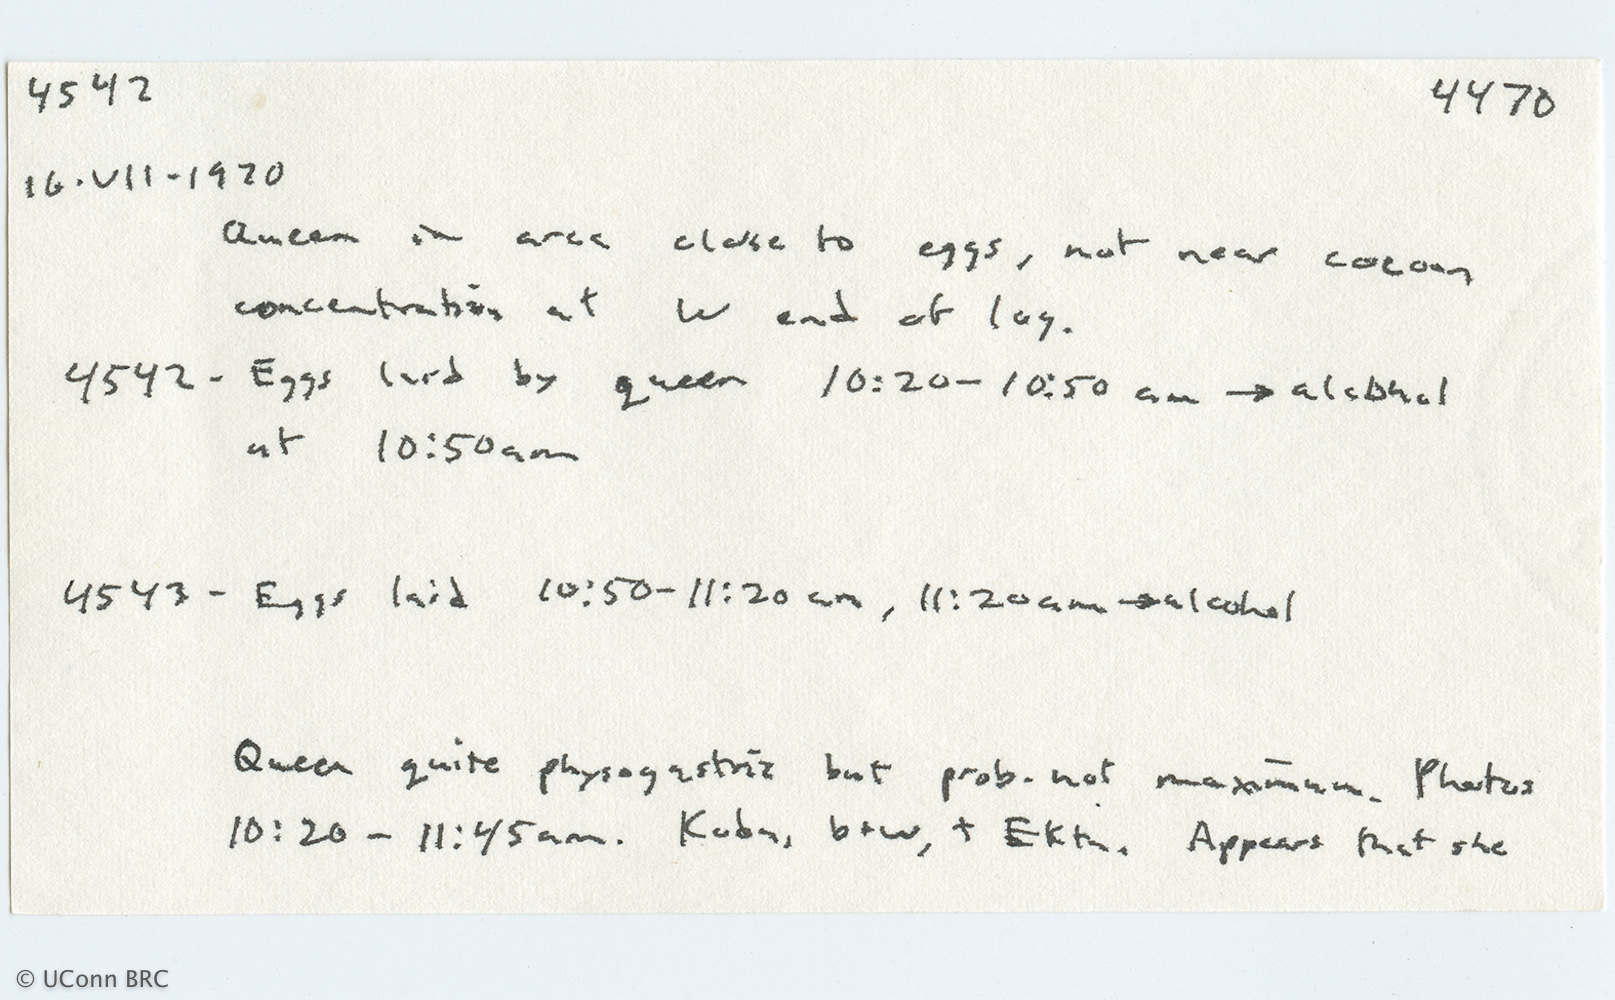 4542 4470
16·VII-1970
Queen in area close to eggs, not near cocoon
concentration at W end of log.
4542 - Eggs laid by queen 10:20-10:50 am → alcohol
at 10:50am
4543 - Eggs laid 10:50-11:20 am, 11:20am → alcohol
Queen quite physogastric but prob. not maximum. Photos
10:20 - 11:45am. Koda, b+w, + Ekta. Appears that she
© UConn BRC